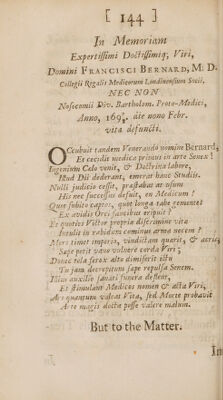 [ 144 ]
In Memoriam
Expertissimi Doctissimiq; Viri,
Domini FRANCISCI BERNARD, M. D.
Collegii Regalis Medicorum Londinensium Socii,
NEC NON
Nosocomii Div. Bartholom. Proto-Medici,
Anno, 169⅞. die nono Febr.
vita defuncti.
OCcubuit tandem Venerando nomine Bernard,
Et cecidit medica primus in arte Senex!
Ingenium Cælo venit, & Doctrina labore,
Illud Dii dederant, emerat hanc Studiis.
Nulli judicio cessit, præstabat at usum
His nec successus defuit, en Medicum!
Quot subito captos, quot longa tabe
Ex avidis Orci faucibus eripuit?
Et quoties Victor propria discrimine vita
Intulit in rabidam cominus arma necem?
Mors timet imperia, vindictam quærit, &
Sæpe petit vano vulnere corda Viri;
Donec tela ferox alto dimiserit ictu
Tu jam decrepitum sæpe repulsa Senem.
Illius auxilio sanari funera deflent,
Et stimulant Medicos nomen & acta Viri,
Ars quanquam valeat Vita, sed Morte probavit
Arte magis docta posse valere malum.
But to the Matter.
In